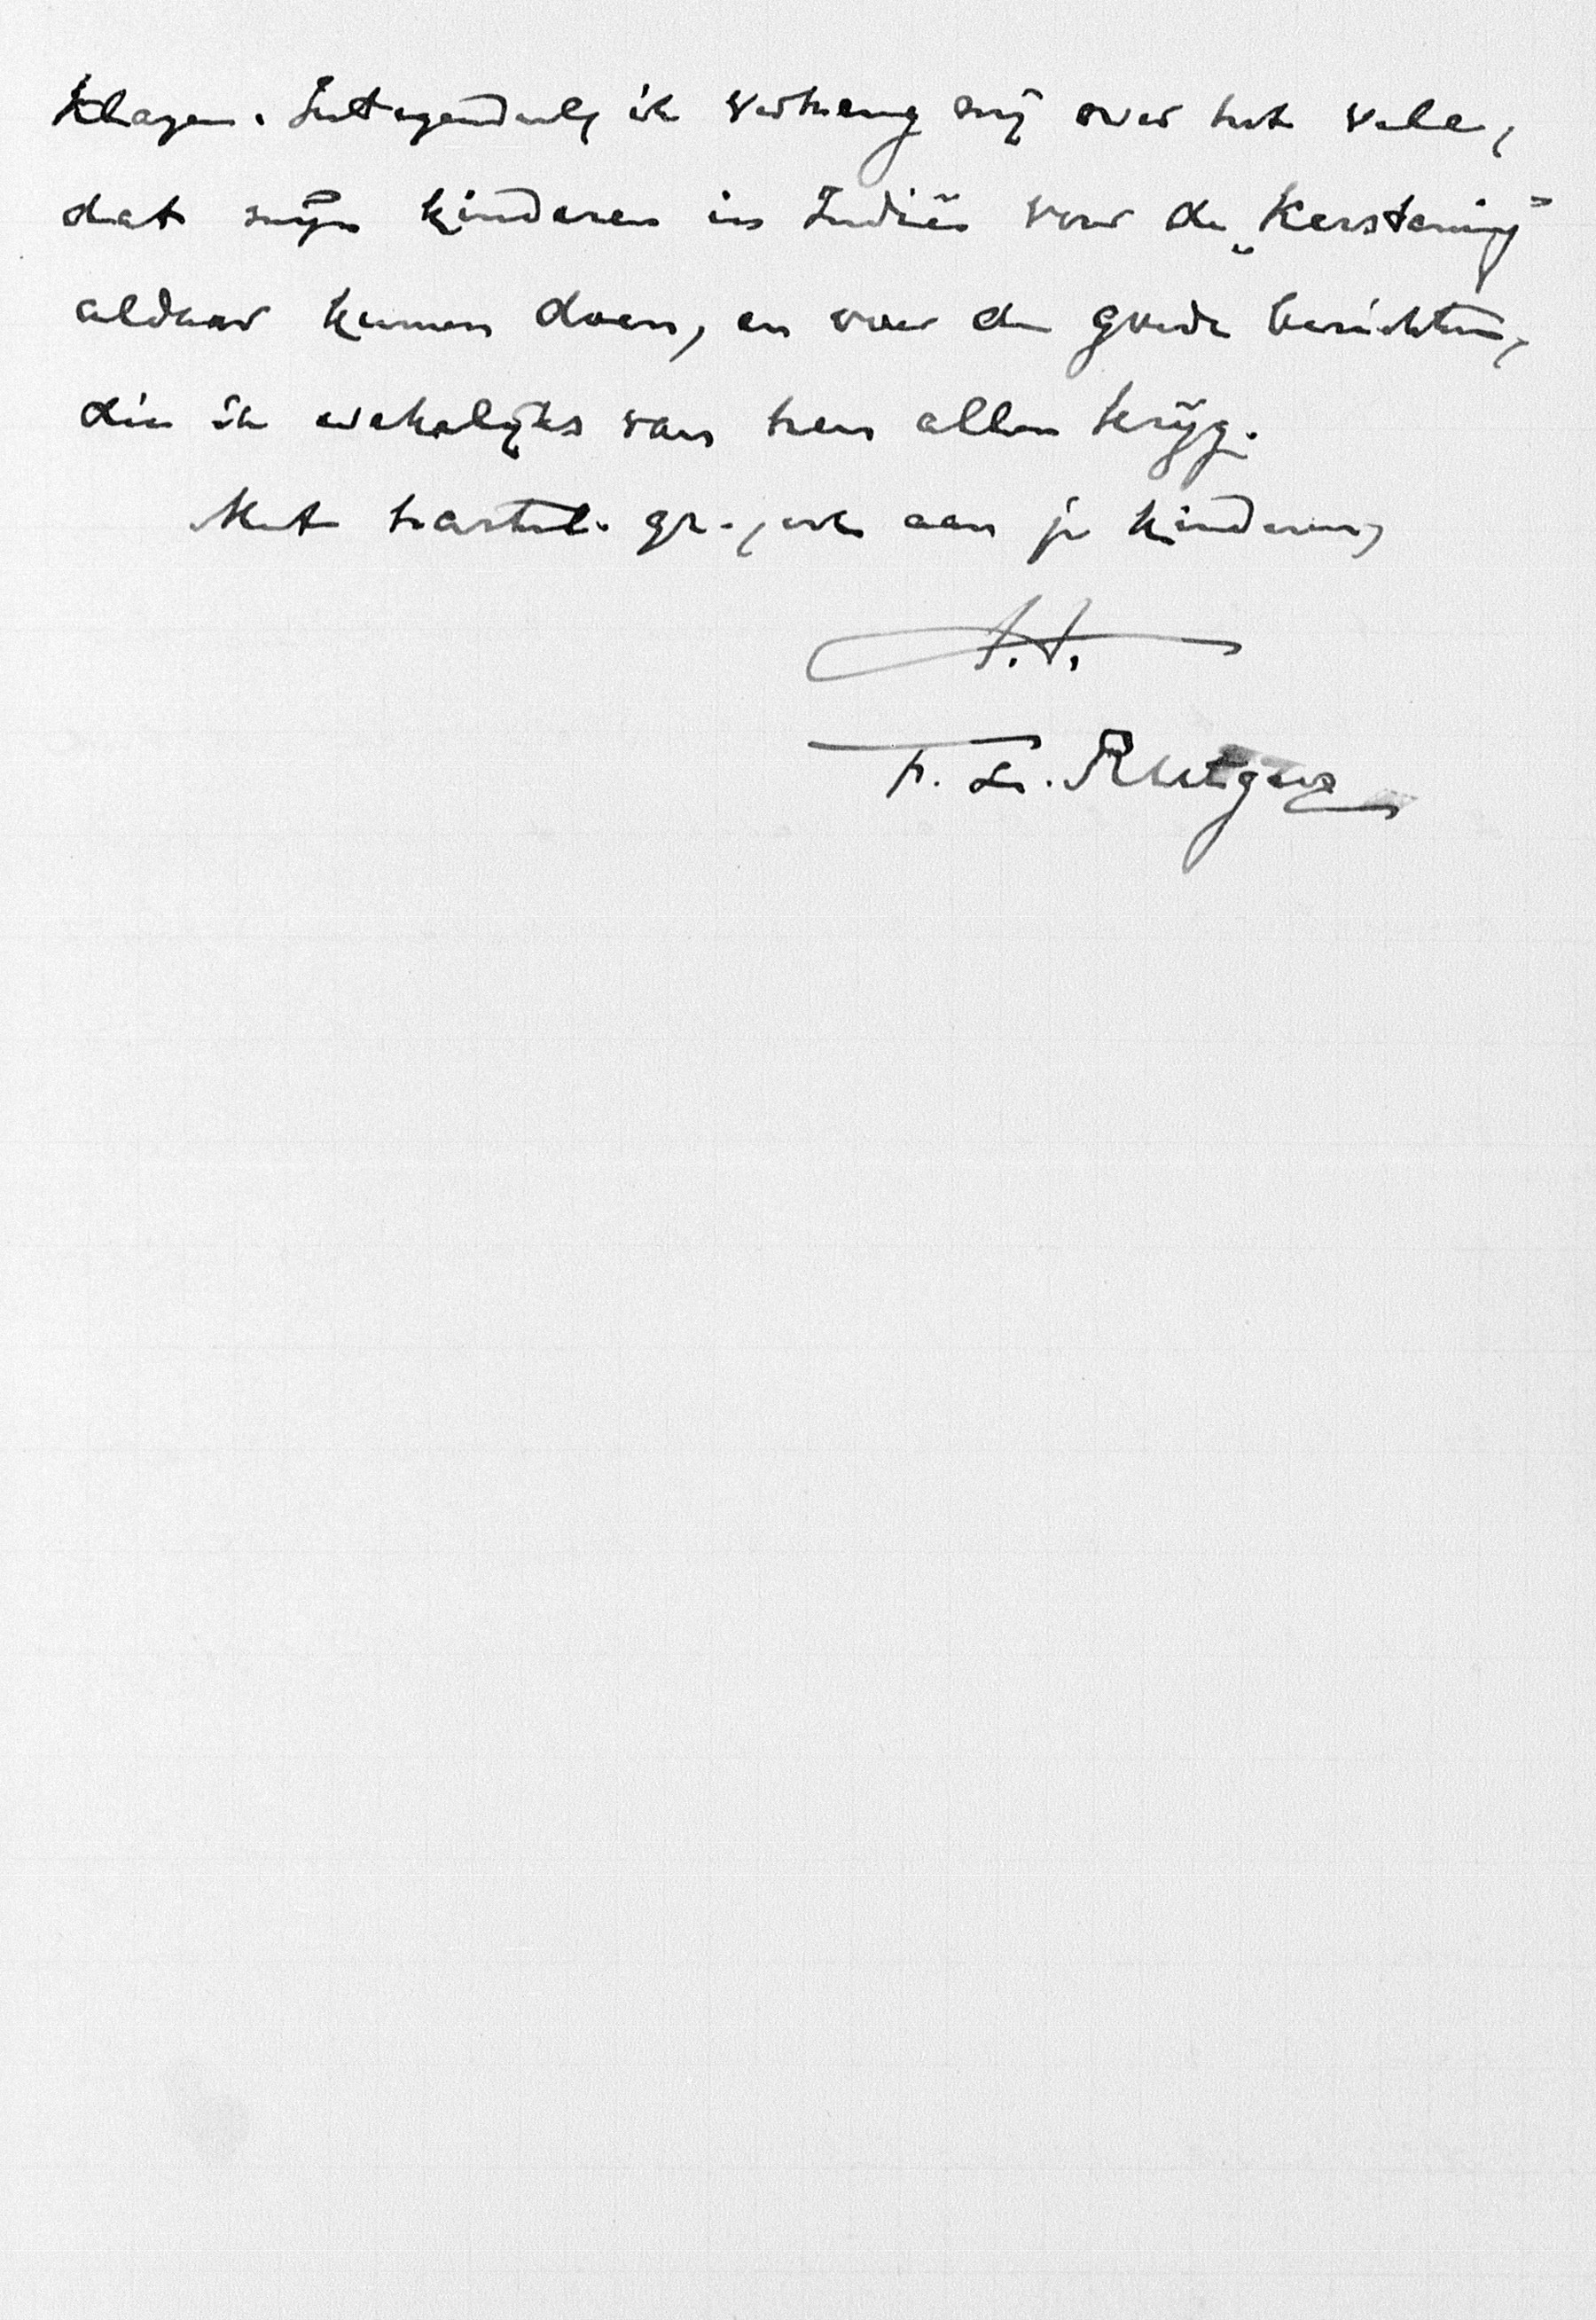 klagen. Integendeel, ik verheug mij over het vele,
dat mijn kinderen in Indië voor de „Kerstening”
aldaar kunnen doen, en over de goede berichten,
die ik wekelijks van hen allen krijg.
Met hartel. gr., ook aan je kinderen,
t.t.
F. L. Rutgers